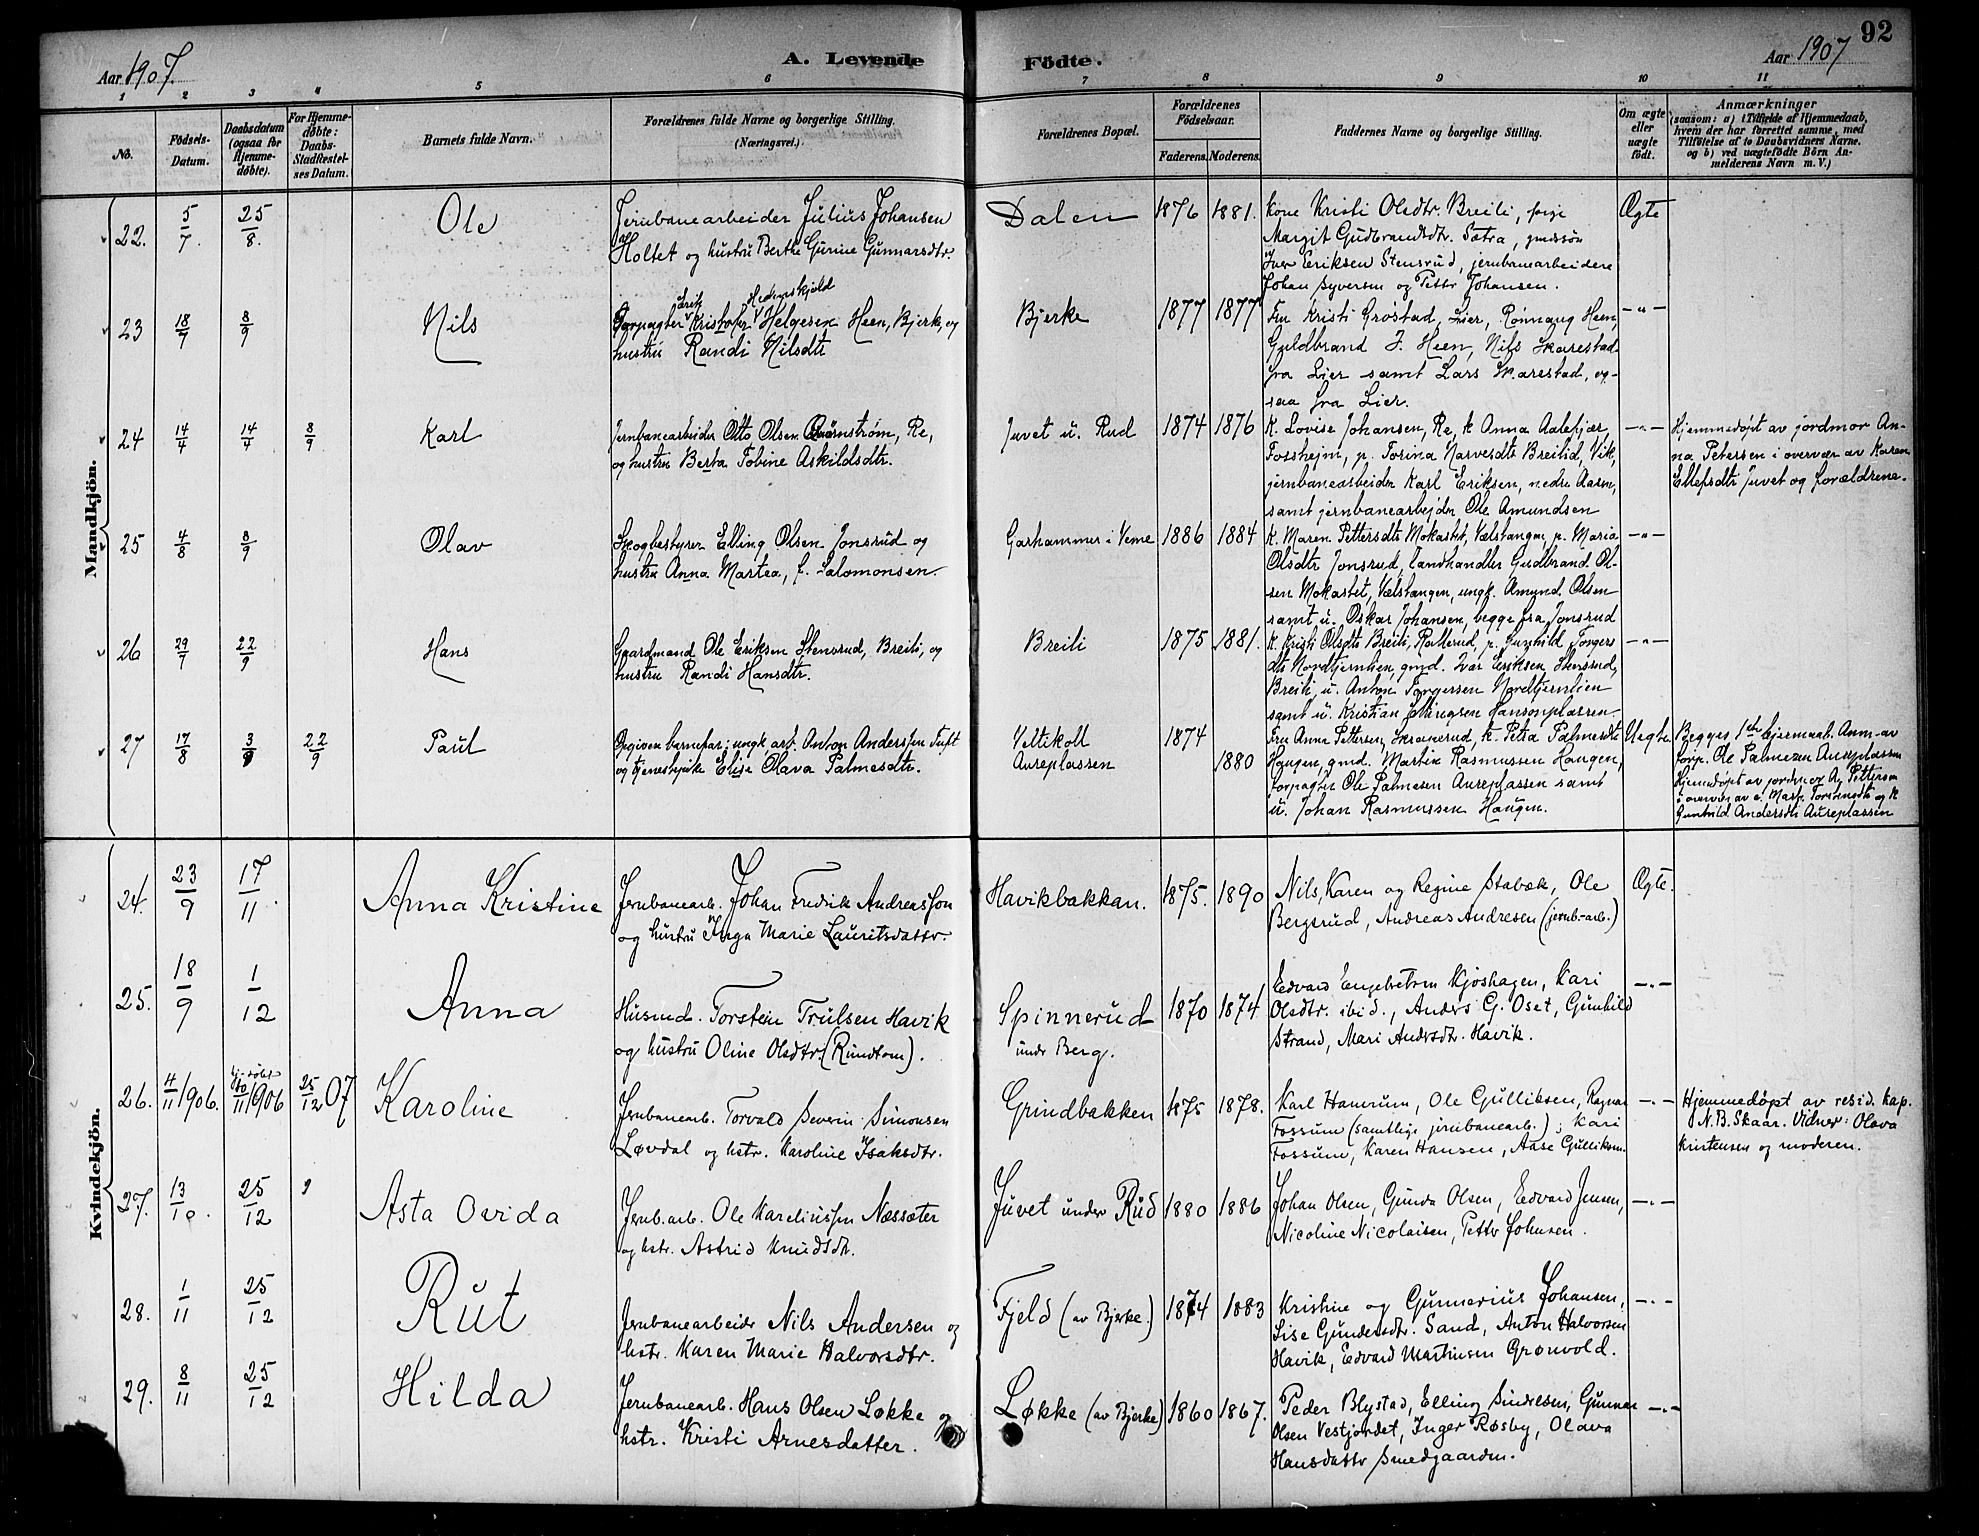 92
Aar 1907.
A. Levende Fødte.
Aar 1907
1 2 3 4 5 6 7 8 9 10 11
No.
Fødsels-Datum.
Daabsdatum (ogsaa for Hjemme-døbte).
For Hjemme-døbte: Daabs-Stadfæstel-ses Datum.
Barnets fulde Navn.
Forældrenes fulde Navne og borgerlige Stilling.
(Næringsvei.)
Forældrenes Bopæl.
Forældrenes Fødselsaar.
Faderens. Moderens.
Faddernes Navne og borgerlige Stilling.
Om ægte eller uægte født.
Anmærkninger
(saasom: a) i Tilfælde af Hjemmedaab,
hvem der har forrettet samme, med
Tilføielse af to Daabsvidners Navne.
og b) ved uægtefødte Børn An-
melderens Navn m. V.)
Mandkjön.
22. 5/7. 25/8. Ole
Jernbanearbeider Julius Johansen
Holtet og hustru Berthe Gurine Gunnarsdtr.
Dalen 1876 1881.
Kone Kristi Olsdtr. Breili, pige
Margit Gudbrandsdtr. Sætra, gaardssøn
Iver Eriksen Stensrud, jernbanearbeidere
Johan Syversen og Petter Johansen.
Ægte
23 18/7 8/9 Nils
Erik Hedenskjold
Forpagter Kristofer Helgesen Heen, Bjerke, og
hustru Randi Nilsdtr
Bjerke 1877 1877
Fru Kristi Grøstad, Lier, Rønnaug Heen,
Guldbrand J. Heen, Nils Skarestad
fra Lier samt Lars Skarestad, og-
saa fra Lier.
— " —
24 14/4 14/4 8/9 Karl
Jernbanearbeider Otto Olsen Quarnstrøm, Re,
og hustru Berta Tobine Askildsdtr.
Juvet u. Rud 1874 1876
K. Lovise Johansen, Re, k Anna Aalekjær,
Fossheim, p. Torina Narvesdtr Breilid, Vik,
jernbanearbeider Karl Eriksen, nedre Aasen,
samt jernbanearbejder Ole Amundsen
— " —
Hjemmedøpt av jordmor An-
na Petersen i overvær av Karen
Ellefsdtr Juvet og forældrene.
25 4/8 8/9 Olav
Skogbestyrer Elling Olsen Jonsrud og
hustru Anna Martea, f. Salomonsen.
Garhammer i Veme 1886 1884
K. Maren Pettersdtr Mokastet, Vælstangen, p. Maria
Olsdtr Jonsrud, landhandler Gudbrand Ol-
sen Mokastet, Vælstangen, ungk. Amund Olsen
samt u. Oskar Johansen, begge fra Jonsrud
— " —
26 29/7 22/9 Hans
Gaardmand Ole Eriksen Stensrud, Breili, og
hustru Randi Hansdtr.
Breili 1875 1881.
K. Kristi Olsdtr Breili, Rallerud, p. Gunhild Torgers
dtr Nordtjernlien, gmd. Ivar Eriksen Stensrud,
Breili, u. Anton Torgersen Nordtjernlien
samt u. Kristian Hansonplassen.
— " —
27 17/8 3/9 22/9 Paul
Opgiven barnefar: ungk. arb. Anton Anderssen Tuft
og tjenestepike Elise Olava Palmesdtr.
Veltikolt 1874
Aureplassen 1880
Fru Anna Pettersen, Skranerud, k. Petra Palmesdtr
Haugen, gmd. Martin Rasmussen Haugen,
forpagter Ole Palmesen Aureplassen samt
u. Johan Rasmussen Haugen.
Uægte
Begges 1ste lejermaal. Anm. av
forp. Ole Palmesen Aureplassen
Hjemmedøpt av jordmor A. Petterson
i overvær av e. Mart. Torstensdtr og k
Gunhild Andersdtr Aureplassen
Kvindekjön.
24. 23/9 17/11. Anna Kristine
Jernbanearb. Johan Fredrik Andreassen
og hustru Inga Marie Lauritsdatter.
Havikbakkan. 1875. 1890
Nils, Karen og Regine Stabæk, Ole
Bergsrud, Andreas Andresen (jernb-arb.)
Ægte.
25. 18/9 1/12 Anna
Husmd. Torstein Trulsen Havik
og hustru Oline Olsdtr (Rundtom).
Spinnerud
undr Berg. 1870 1874
Edvard Engebretsen Kjoshagen, Kari
Olsdtr. ibid., Anders G. Oset, Gunhild
Strand, Mari Andersdtr. Havik.
— " —
26. 4/11 1906. hj-døbt 10/11 1906 25/12 07 Karoline
Jernbanearb. Torvald Severin Simonsen
Løvdal og hstr. Karoline Isaksdtr.
Grindbakken 1875 1878.
Karl Hamrum, Ole Gulliksen, Ragnar
Fossum (samtlige jernbanearb.); Kari
Fossum, Karen Hansen, Aase Gulliksen.
— " —
Hjemmedøpt av resid. kap.
N. B. Skaar. Vidner: Olava
Kristensen og moderen.
27. 13/10. 25/12 Asta Ovida
Jernb.arb. Ole Kareliussen Næssæter
og hstr. Astrid Knudsdtr.
Juvet under Rud 1880 1886
Johan Olsen, Gunda Olsen, Edvard Jensen,
Nicoline Nicolaisen, Petter Johnsen.
— " —
28. 1/11 25/12 Rut
Jernbanearbeidr Nils Andersen og
hstr. Karen Marie Halvorsdtr.
Fjeld (av Bjerke.) 1874 1883
Kristine og Gunnerius Johansen,
Lise Gundersdtr. Sand, Anton Halvorsen
Havik, Edvard Martinsen Grønvold.
— " —
29. 8/11 25/12 Hilda
Jernbanearb. Hans Olsen Løkke og
hstr. Kristi Arnesdatter.
Løkke (av Bjerke) 1860 1867.
Peder Blystad, Elling Sindresen, Gunnar
Olsen Vestjordet, Inger Røsby, Olava
Hansdatter Smedgaarden.
— " —